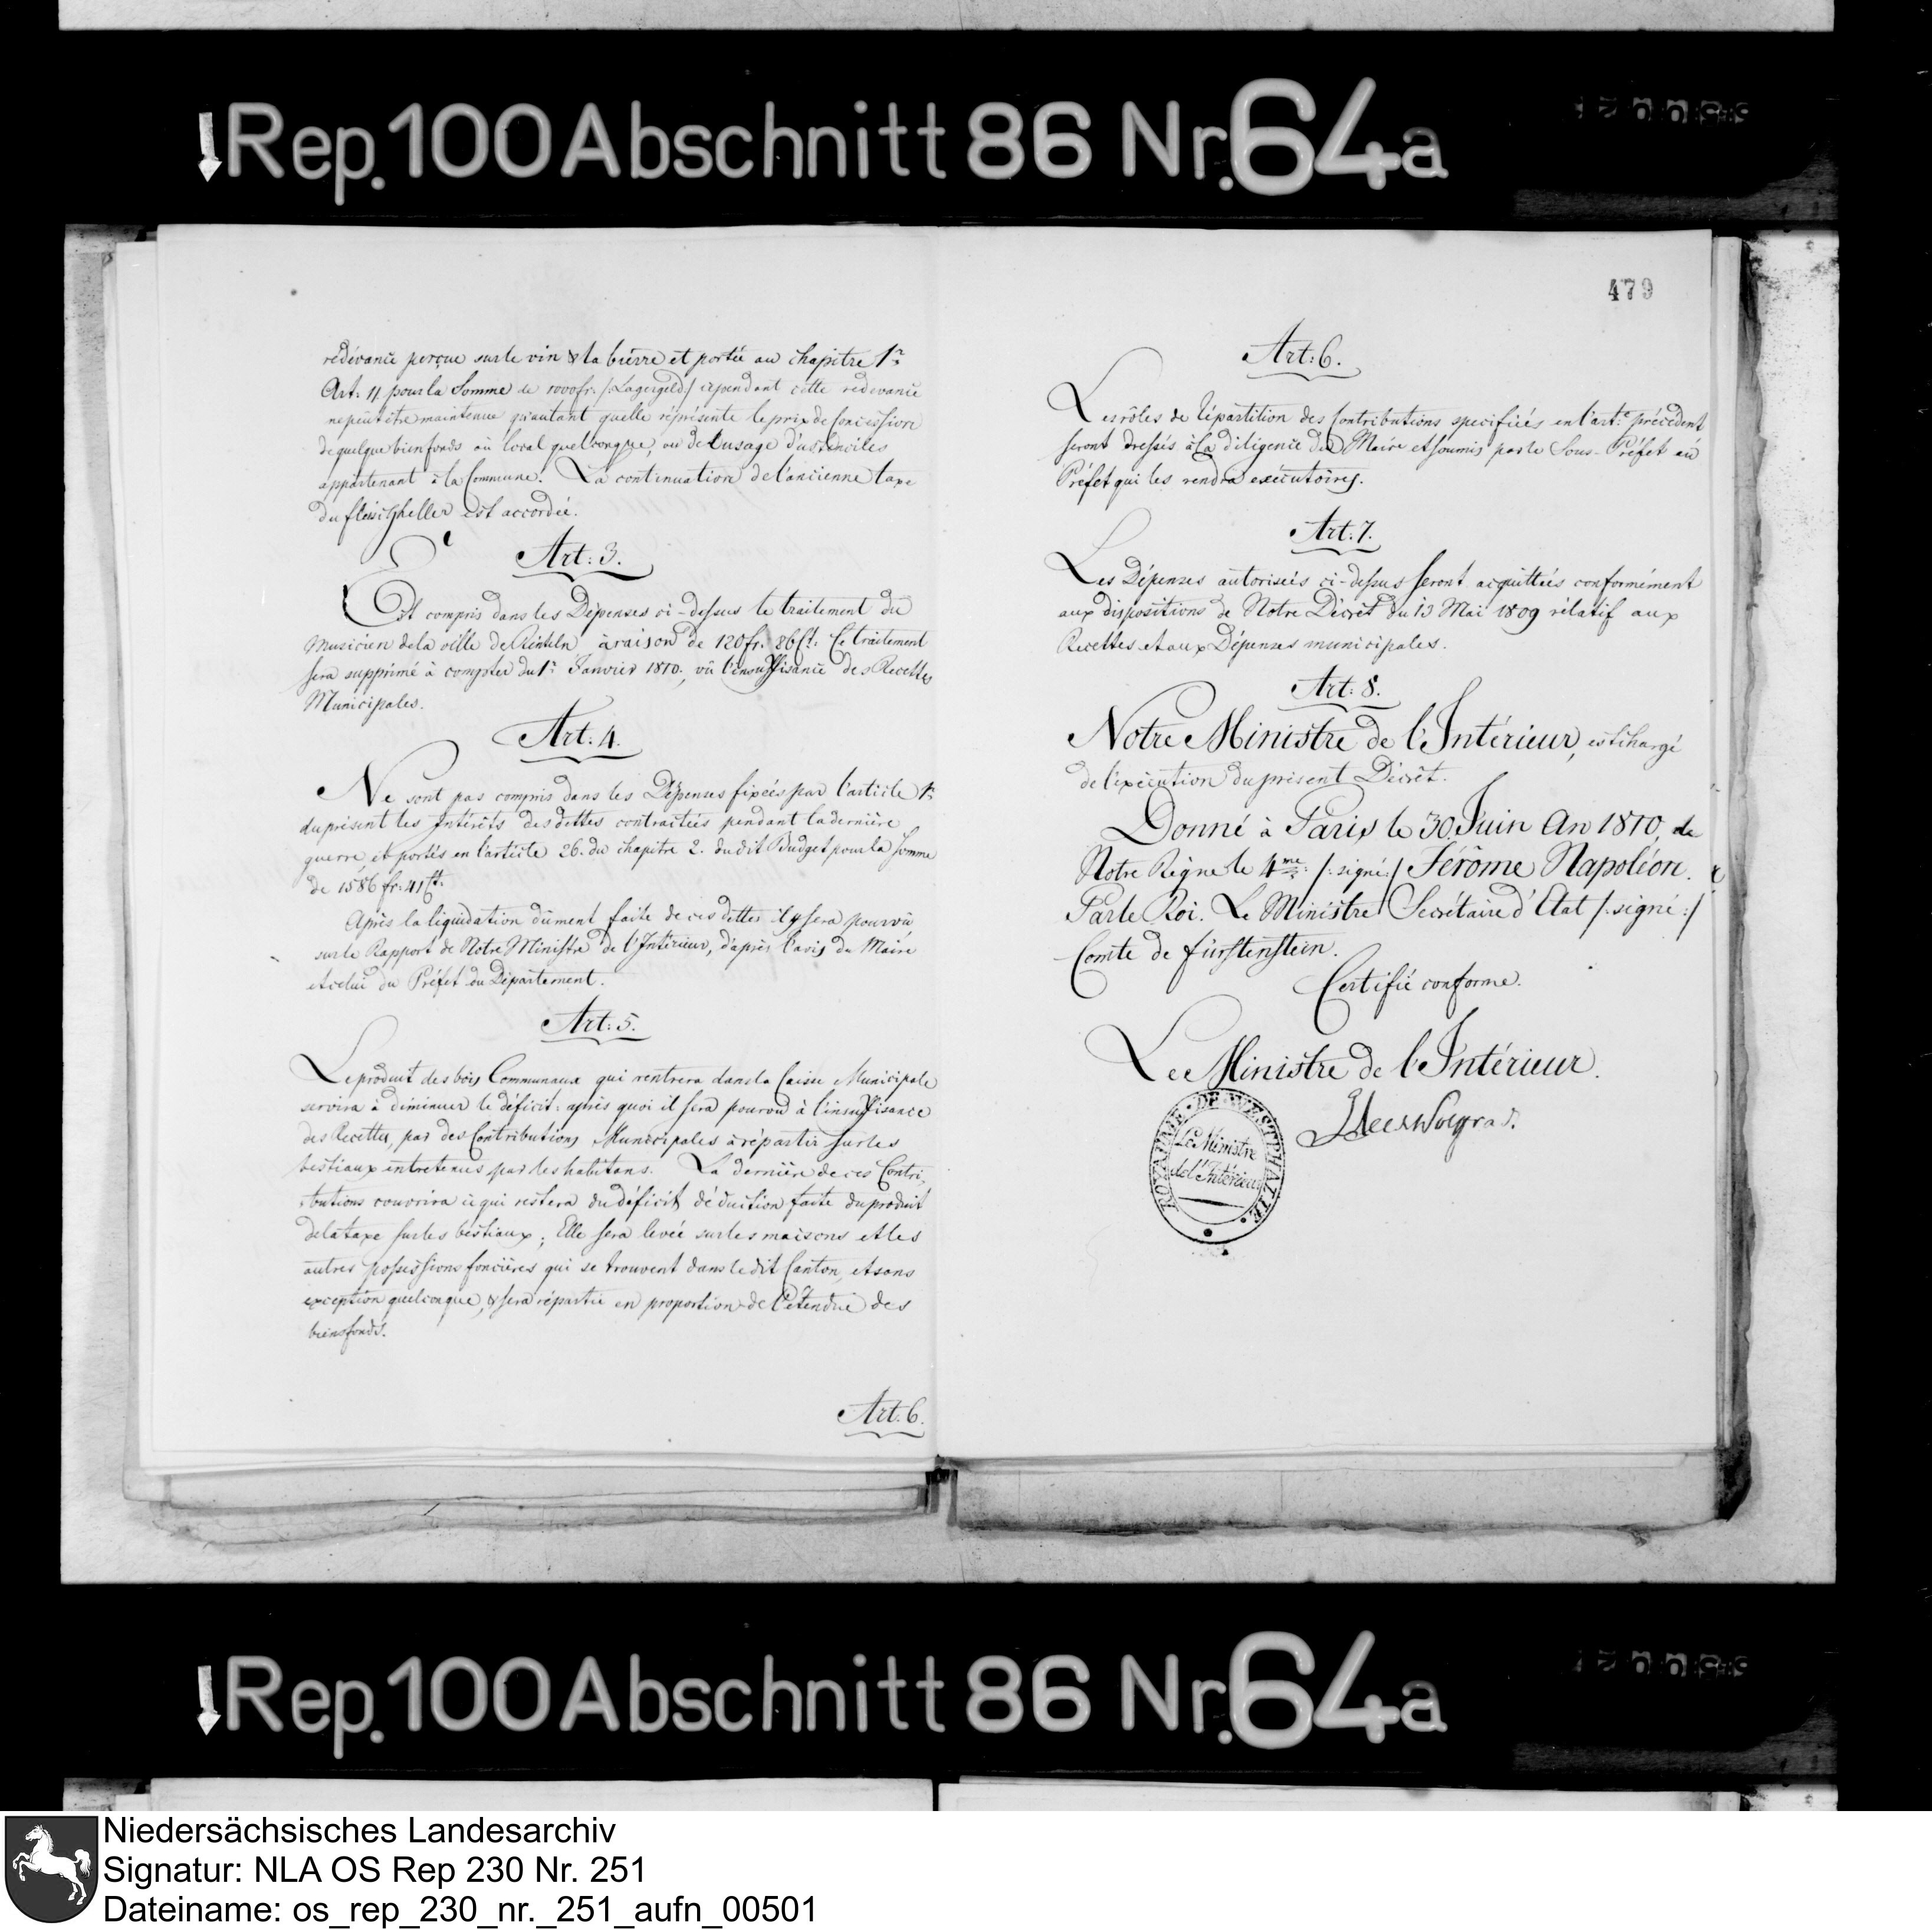 Rep. 100 Abschnitt 86 Nr. 64a
redévance perçue sur le vin & la biérre et portée au chapitre 1r
Art: 11 pour la Somme de 1000 fr. /:Lagergeld:/ cependant cette redevance
ne peut être maintenue qu'autant quelle réprésente le prix de Concession
de quelque bien fonds ou local quelconque, ou de l'usage d'ustenciles
appartenant à la Commune. La continuation de l'ancienne taxe
du fleischheller est accordée.
Art: 3.
Est compris dans les Dépenses ci-dessus le traitement du
Musicien de la ville de Rinteln à raison de 120 fr. 86 Ct: Ce traitement
sera supprimé à compter du 1r Janvier 1810, vû l'insuffisance des Recettes
Municipales.
Art: 4.
Ne sont pas compris dans les Dépenses fixées par l'article 1r
du présent les Intérêts des dettes contractées pendant la dernière
guerre et portés en l'article 26. du chapitre 2. du dit Budget pour la Somme
de 1586 fr: 41 Ct.
Après la liquidation dûment faite de ces dettes il y sera pourvû
sur le Rapport de Notre Ministre de l'Intérieur, d'après l'avis du Maire
et celui du Préfet du Département.
Art: 5.
Le produit des bois Communaux qui rentrera dans la Caisse Municipale
servira à diminuer le déficit: après quoi il sera pourvu à l'insuffisance
des Recettes, par des Contributions Municipales à répartir sur les
bestiaux entretenus par les habitans. La dernière de ces Contri-
butions couvrira ce qui restera du déficit déduction faite du produit
de la taxe sur les bestiaux; Elle sera levée sur les maisons et les
autres possessions foncières qui se trouvent dans le dit Canton, et sans
exception quelconque, & sera répartie en proportion de l'étendue des
biensfonds.
Art: 6.
479
Art: 6.
Les rôles de répartition des Contributions specifiées en l'art:e précédent
seront dressés à la diligence du Maire et soumis par le Sous-Préfet au
Préfet qui les rendra exécutoires.
Art: 7.
Les Dépenses autorisées ci-dessus seront acquittées conformément
aux dispositions de Notre Décret du 13 Mai 1809 rélatif aux
Recettes et aux Dépenses municipales.
Art: 8.
Notre Ministre de l'Intérieur, est chargé
de l'exécution du présent Décrêt.
Donné à Paris le 30. Juin An 1810, de
Notre Règne le 4me /:signé:/ Jérôme Napoléon.
Par le Roi. Le Ministre Secrétaire d'Etat /:signé:/
Comte de fürstenstein.
Certifié conforme.
Le Ministre de l'Intérieur.
ROYAUME DE WESTPHALIE
Le Ministre
de l'Intérieur
Rep. 100 Abschnitt 86 Nr. 64a
Niedersächsisches Landesarchiv
Signatur: NLA OS Rep 230 Nr. 251
Dateiname: os_rep_230_nr._251_aufn_00501